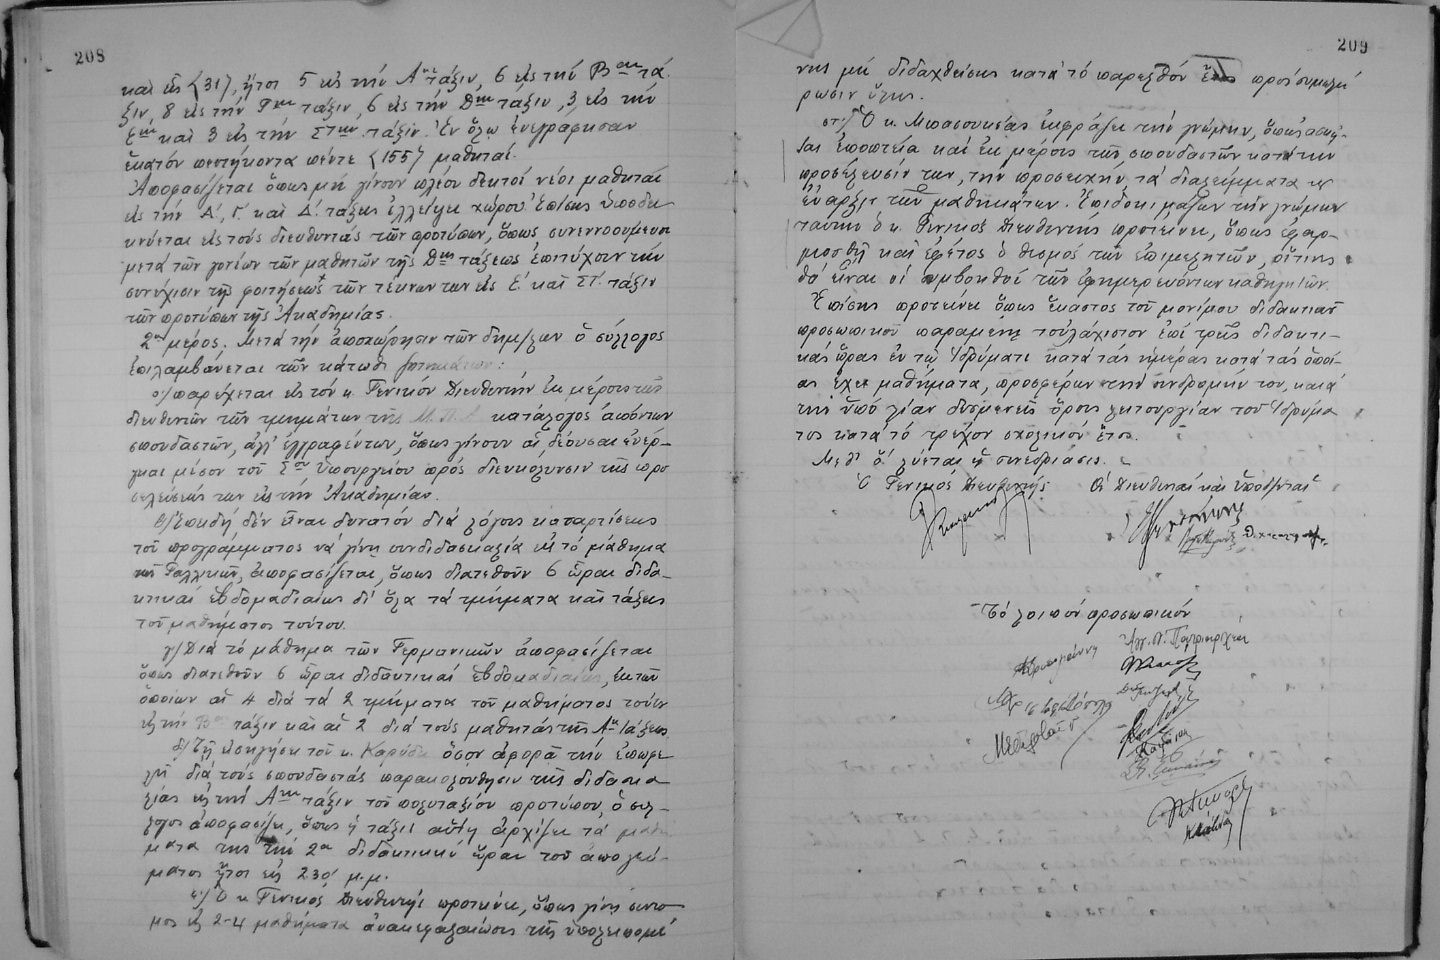 208
καὶ εἰς (31), ἤτοι 5 εἰς τὴν Αην τάξιν, 6 εἰς τὴν Βαν τά-
ξιν, 8 εἰς τὴν Γην τάξιν, 6 εἰς τὴν Δην τάξιν, 3 εἰς τὴν
Εην καὶ 3 εἰς τὴν ΣΤην τάξιν. Ἐν ὅλῳ ἐνεγράφησαν
ἑκατὸν πεντήκοντα πέντε (155) μαθηταί.
Ἀποφασίζεται ὅπως μὴ γίνουν πλέον δεκτοὶ νέοι μαθηταὶ
εἰς τὴν Α΄, Γ΄ καὶ Δ΄ τάξεις ἐλλείψει χώρου. Ἐπίσης ὑποδει-
κνύεται εἰς τοὺς διευθυντὰς τῶν προτύπων, ὅπως συνεννοούμενοι
μετὰ τῶν γονέων τῶν μαθητῶν τῆς Δης τάξεως ἐπιτύχουν τὴν
συνέχισιν τῆς φοιτήσεως τῶν τέκνων των εἰς Ε΄ καὶ ΣΤ΄ τάξιν
τῶν προτύπων τῆς Ἀκαδημίας.
2ον μέρος. Μετὰ τὴν ἀποχώρησιν τῶν δημ/λων ὁ σύλλογος
ἐπιλαμβάνεται τῶν κάτωθι ζητημάτων:
α) παρέχεται εἰς τὸν κ. Γενικὸν Διευθυντὴν ἐκ μέρους τῶν
διευθυντῶν τῶν τμημάτων τῆς Μ.Π.Α. κατάλογος ἀπόντων
σπουδαστῶν, ἀλλ' ἐγγραφέντων, ὅπως γίνουν αἱ δέουσαι ἐνέρ-
γειαι μέσον τοῦ Σοῦ Ὑπουργείου πρὸς διευκόλυνσιν τῆς προ-
σελεύσεώς των εἰς τὴν Ἀκαδημίαν.
β) Ἐπειδὴ δὲν εἶναι δυνατὸν διὰ λόγους καταρτίσεως
τοῦ προγράμματος νὰ γίνῃ συνδιδασκαλία εἰς τὸ μάθημα
τῶν Γαλλικῶν, ἀποφασίζεται, ὅπως διατεθοῦν 6 ὧραι διδα-
κτικαὶ ἑβδομαδιαίως δι' ὅλα τὰ τμήματα καὶ τάξεις
τοῦ μαθήματος τούτου.
γ) Διὰ τὸ μάθημα τῶν Γερμανικῶν ἀποφασίζεται
ὅπως διατεθοῦν 6 ὧραι διδακτικαὶ ἑβδομαδιαίως, ἐκ τῶν
ὁποίων αἱ 4 διὰ τὰ 2 τμήματα τοῦ μαθήματος τούτου
εἰς τὴν Βαν τάξιν καὶ αἱ 2 διὰ τοὺς μαθητὰς τῆς Ας τάξεως.
δ) Τῇ εἰσηγήσει τοῦ κ. Καρύδη ὅσον ἀφορᾶ τὴν ἐπωφε-
λῆ διὰ τοὺς σπουδαστὰς παρακολούθησιν τῆς διδασκα-
λίας εἰς τὴν Αην τάξιν τοῦ πολυταξίου προτύπου, ὁ σύλ-
λογος ἀποφασίζει, ὅπως ἡ τάξις αὕτη ἀρχίζει τὰ μαθή-
ματά της τὴν 2αν διδακτικὴν ὥραν τοῦ ἀπογεύ-
ματος ἤτοι εἰς 2.30' μ.μ.
ε) Ὁ κ. Γενικὸς Διευθυντὴς προτείνει, ὅπως γίνῃ συντο-
μος εἰς 2-4 μαθήματα ἀνακεφαλαίωσις τῆς ὑπολειπομέ-
209
νης μὴ διδαχθείσης κατὰ τὸ παρελθὸν ἔτος πρὸς συμπλή-
ρωσιν ὕλης.
στ) Ὁ κ. Μπασουκέας ἐκφράζει τὴν γνώμην, ὅπως ἀσκῆ-
ται ἐποπτεία καὶ ἐκ μέρους τῶν σπουδαστῶν κατὰ τὴν
προσέλευσίν των, τὴν προσευχήν, τὰ διαλείμματα κ
ἐναρξιν τῶν μαθημάτων. Ἐπιδοκιμάζων τὴν γνώμην
ταύτην ὁ κ. Γενικὸς Διευθυντὴς προτείνει, ὅπως ἐφαρ-
μοσθῇ καὶ ἐφέτος ὁ θεσμὸς τῶν ἐπιμελητῶν, οἵτινες
θὰ εἶναι οἱ βοηθοὶ τῶν ἐφημερευόντων καθηγητῶν.
Ἐπίσης προτείνει ὅπως ἕκαστος τοῦ μονίμου διδακτικοῦ
προσωπικοῦ παραμένῃ τοὐλάχιστον ἐπὶ τρεῖς διδακτι-
κὰς ὥρας ἐν τῷ Ἱδρύματι κατὰ τὰς ἡμέρας κατὰ τὰς ὁποί-
ας ἔχει μαθήματα, προσφέρων τὴν συνδρομήν του, κατὰ
τὴν ὑπὸ λίαν δυσμενεῖς ὅρους λειτουργίαν τοῦ Ἱδρύμα-
τος κατὰ τὸ τρέχον σχολικὸν ἔτος.
Μεθ' ὃ λύεται ἡ συνεδρίασις.
Ὁ Γενικὸς Διευθυντὴς Οἱ Διευθυνταὶ καὶ Ὑποδ/νταὶ
Τὸ λοιπὸν προσωπικόν